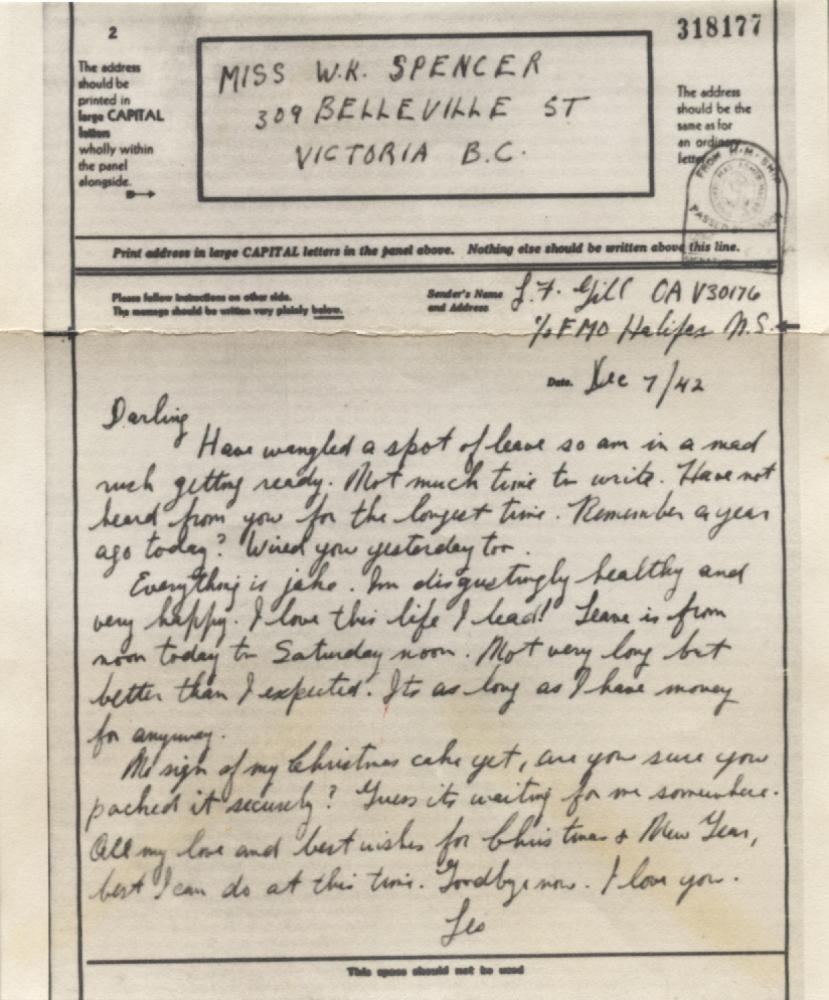 2
318177
The address
should be
printed in
large CAPITAL
letters
wholly within
the panel
alongside.
MISS W.K. SPENCER
309 BELLEVILLE ST
VICTORIA B.C.
The address
should be the
same as for
an ordinary
letter
FROM H.M. SHIP
Print address in large CAPITAL letters in the panel above. Nothing else should be written above this line.
Please follow instructions on other side.
The message should be written very plainly below.
Sender's Name
and Address
L.F. Gill OA V30176
℅ FMO Halifax N.S.
Date. Dec 7/42
Darling
Have wangled a spot of leave so am in a mad
rush getting ready. Not much time to write. Have not
heard from you for the longest time. Remember a year
ago today? Wired you yesterday too.
Everything is jake. Im disgustingly healthy and
very happy. I love this life I lead! Leave is from
noon today to Saturday noon. Not very long but
better than I expected. Its as long as I have money
for anyway.
No sign of my Christmas cake yet, are you sure you
packed it securely? Guess its waiting for me somewhere.
All my love and best wishes for Christmas & New Year,
best I can do at this time. Goodbye now. I love you.
Leo
This space should not be used